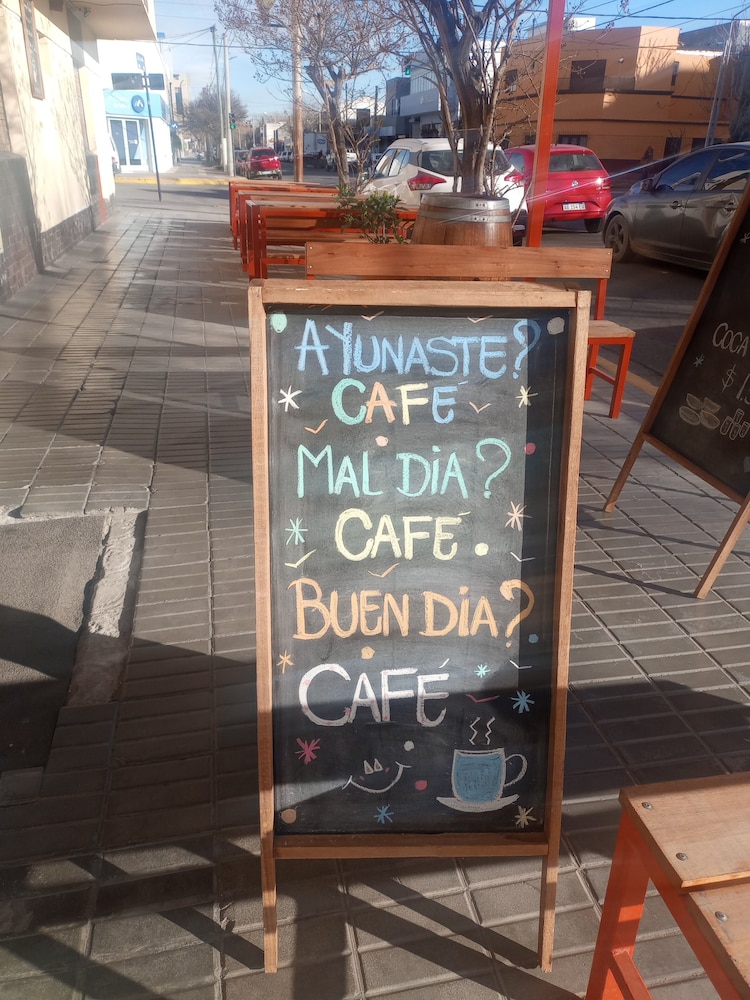 AYUNASTE?
CAFÉ
MAL DIA?
CAFÉ.
BUEN DÍA?
CAFÉ
COCA
$1.